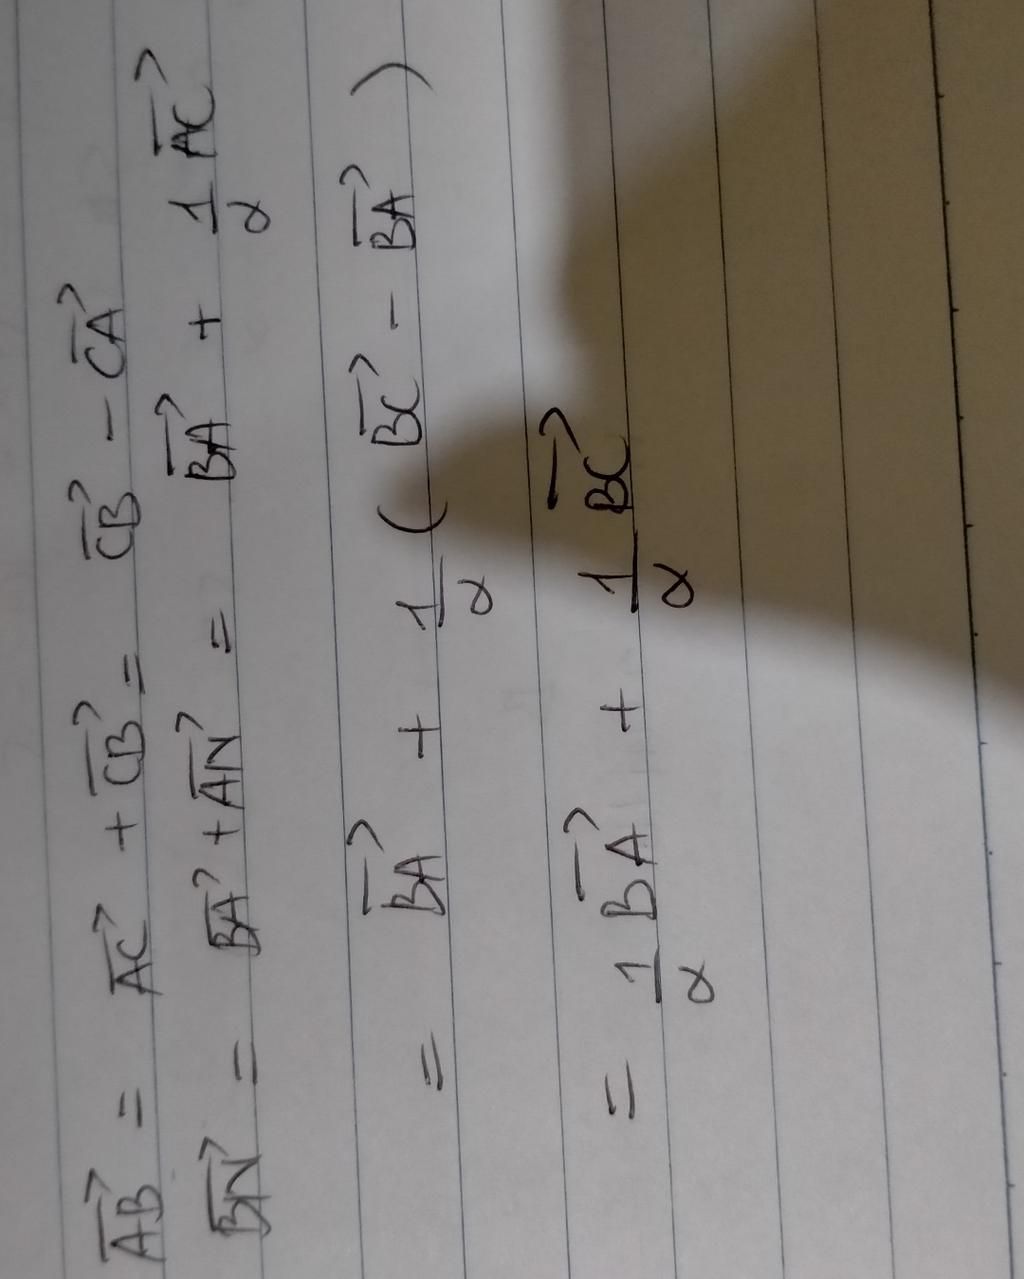 $\overrightarrow{AB} = \overrightarrow{AC} + \overrightarrow{CB} = \overrightarrow{CB} - \overrightarrow{CA}$
$\overrightarrow{BN} = \overrightarrow{BA} + \overrightarrow{AN} = \overrightarrow{BA} + \frac{1}{2} \overrightarrow{AC}$
$= \overrightarrow{BA} + \frac{1}{2} ( \overrightarrow{BC} - \overrightarrow{BA} )$
$= \frac{1}{2} \overrightarrow{BA} + \frac{1}{2} \overrightarrow{BC}$